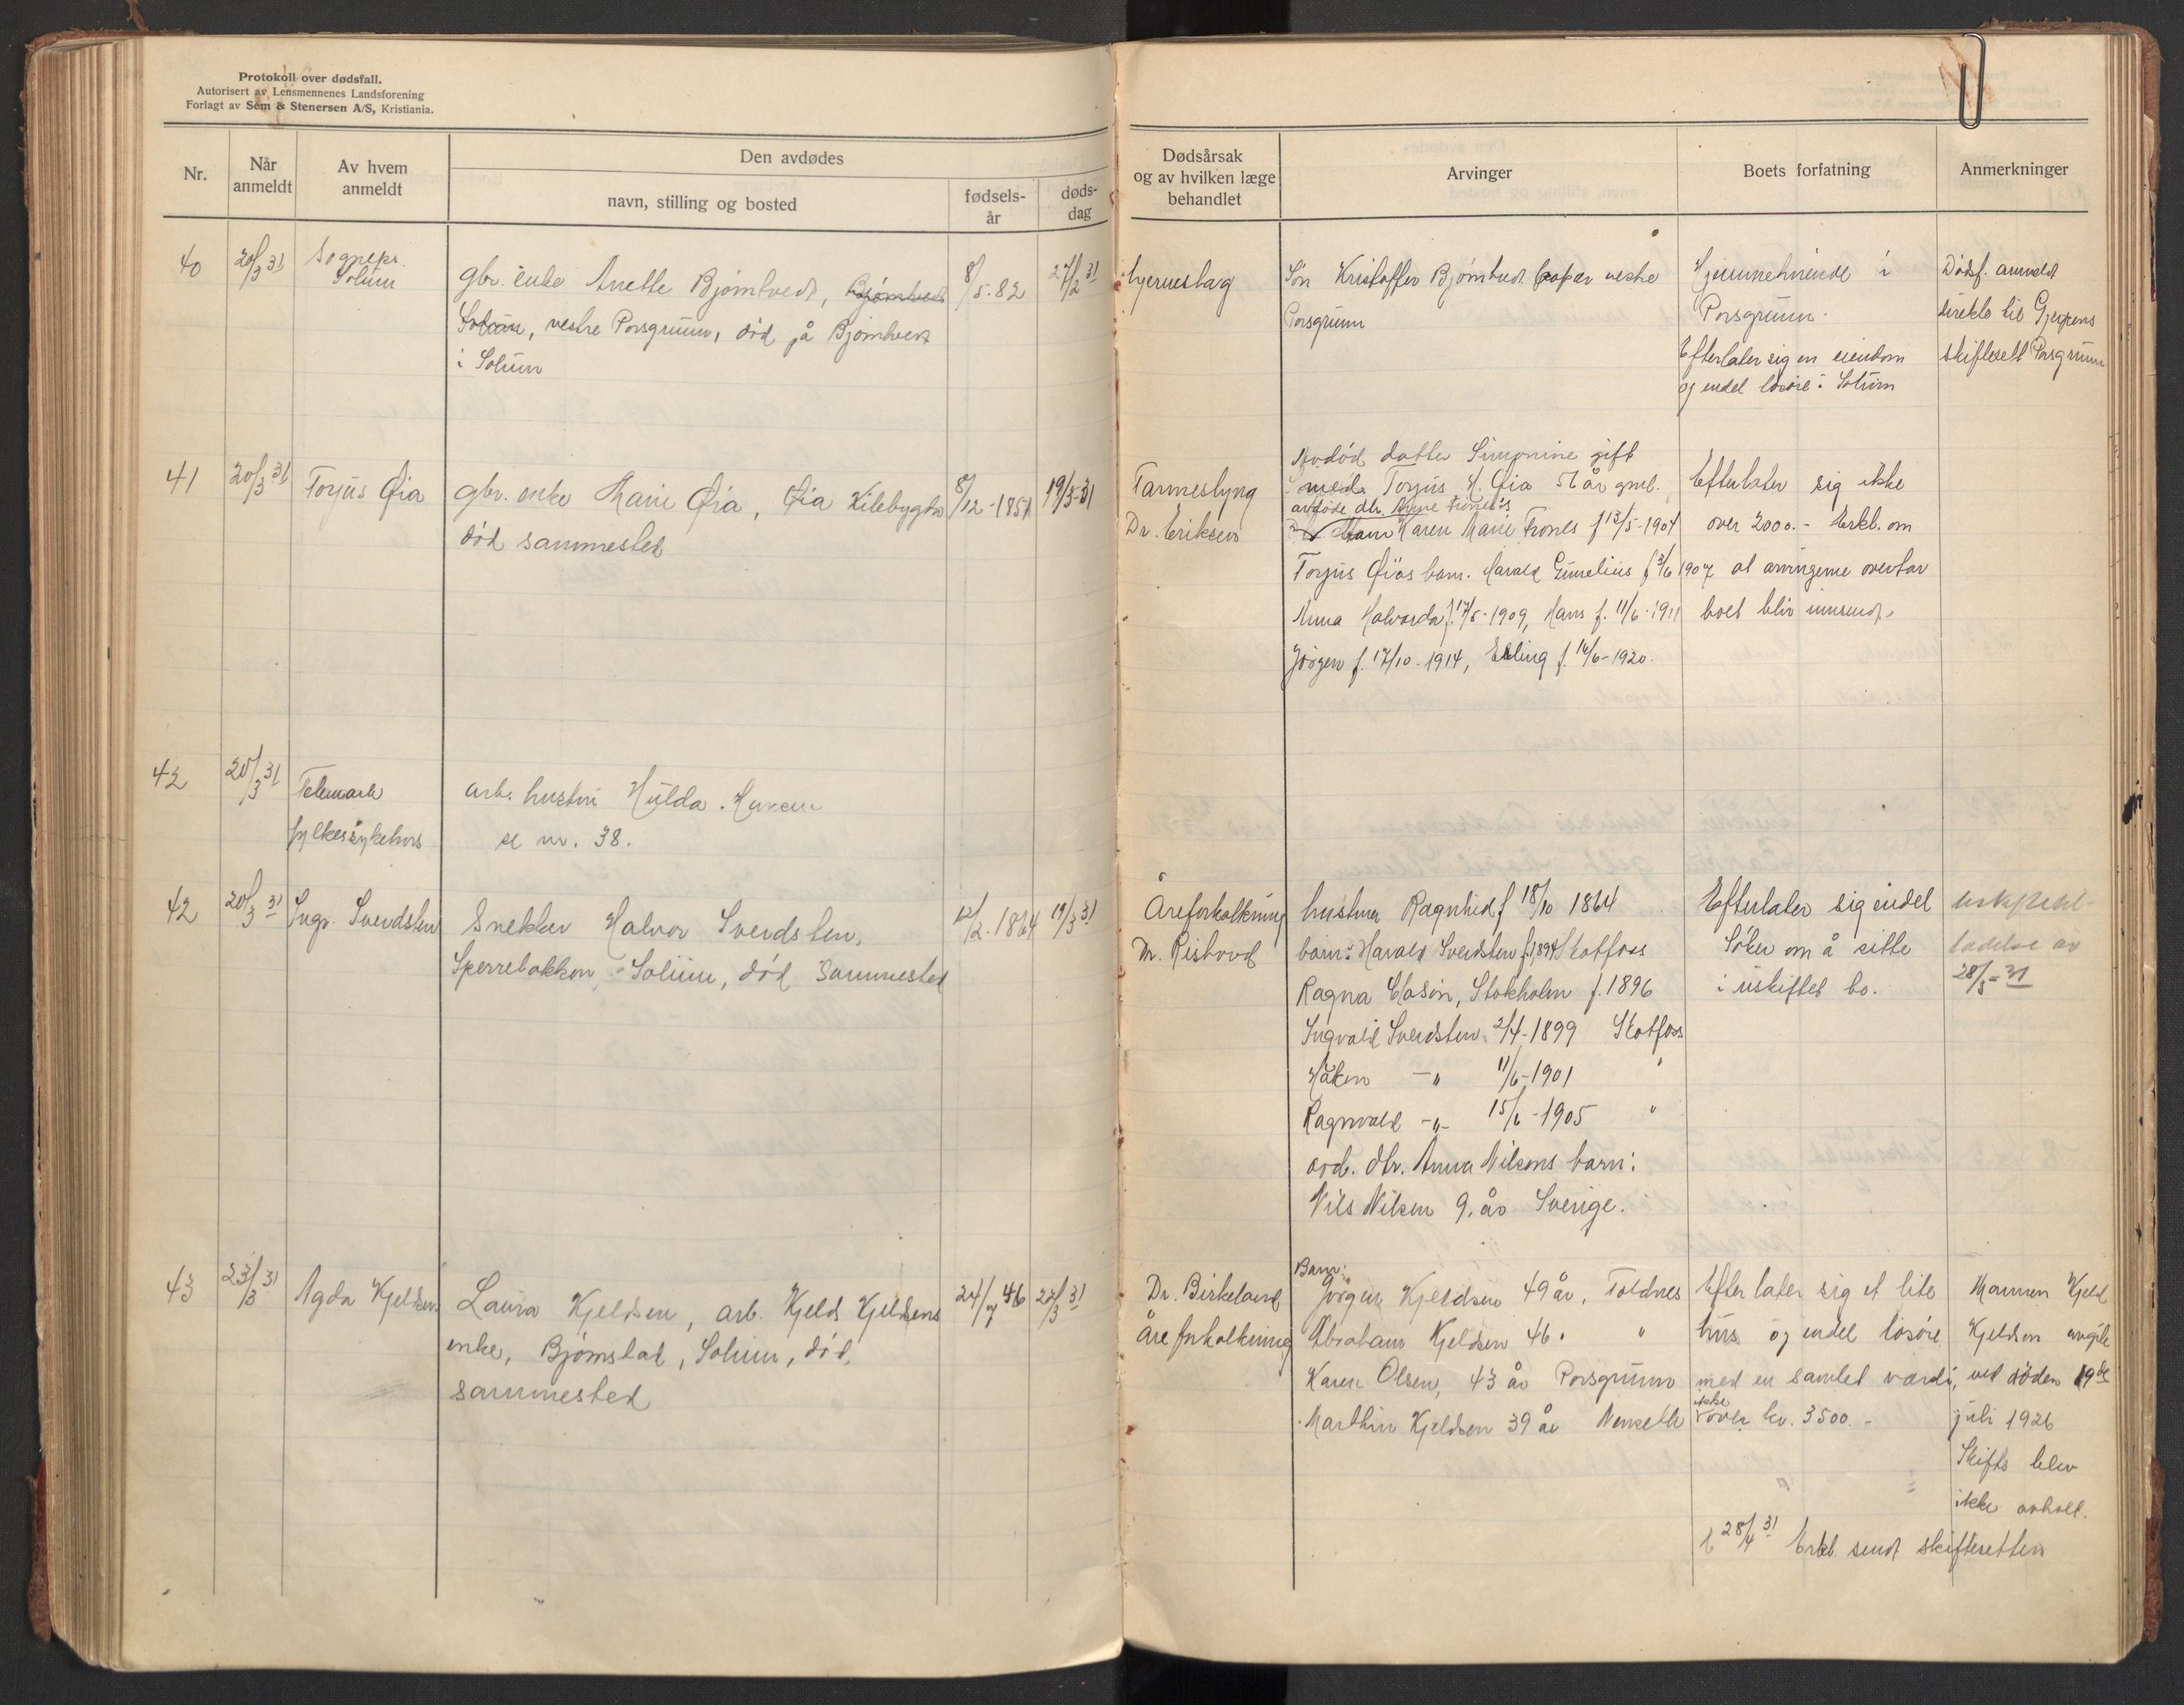 Protokoll over dødsfall.
Autorisert av Lensmennenes Landsforening
Forlagt av Sem & Stenersen A/S, Kristiania.
Nr.
Når anmeldt
Av hvem anmeldt
Den avdødes
navn, stilling og bosted
fødsels-år
døds-dag
Dødsårsak og av hvilken læge behandlet
Arvinger
Boets forfatning
Anmerkninger
40
20/3 31
Sognepr.
Solum
gbr. enke Anette Bjørntvedt, Bjørntvedt
Solum, vestre Porsgrunn, død på Bjørntvedt
i Solum
8/5.82
27/2 31
hjerneslag
Søn Kristoffer Bjørntvedt vestre
Porsgrunn
Hjemmehørende i
Porsgrunn.
Efterlater sig en eiendom
og endel løsøre i Solum
Dødsf. anmeldt
direkte til Gjerpens
skifterett Porsgrunn
41
20/3 31
Torjus Øia
gbr. enke Marie Øia, Øia Kilebygda
død sammested
8/12-1851
19/3-31
Tarmeslyng
Dr. Eriksen
Avdød datter gift
med Torjus H. Øia 57 år gml.
avdøde dtr.
barn Karen Marie Frones f 13/5-1904
Torjus Øias barn. Harald f 3/6 1907
Anna Halvarda f. 17/5-1909, Hans f. 11/6-1911
Jørgen f. 17/10-1914, Erling f. 16/6-1920.
Efterlater sig ikke
over 2000.- Erkl. om
at arvingerne overtar
boet blir innsendt.
42
20/3 31
Telemark
fylkessykehus
arb. hustru Hulda Hansen
se nr. 38.
42
20/3 31
Ingv. Sverdsten
Snekker Halvor Sverdsten,
Sperrebakken, Solum, død sammested
12/2.1864
19/3 31
Åreforkalkning
Dr. Rishovd
hustru Ragnhild f 18/10 1864
barn: Harald Sverdsten f. 1894 Skotfoss
Ragna Clasøn, Stokholm f. 1896
Ingvald Sverdsten 2/4-1899 Skotfoss
Håken -"- 11/6-1901 "
Ragnvald -"- 15/6-1905 "
avd. dtr. Anna Nilsens barn:
Nils Nilsen 9 år Sverige.
Efterlater sig endel
Søker om å sitte
i uskiftet bo.
ladelse av
28/3-31
43
23/3 31
Agda Kjeldsen
Laura Kjeldsen, arb. Kjeld Kjeldsens
enke, Bjørnstad, Solum, død
sammested
24/7 46
22/3 31
Dr. Birkeland
Åreforkalkning
Barn:
Jørgen Kjeldsen 49 år, Toldnes
Abraham Kjeldsen 46 " "
Karen Olsen, 43 år Porsgrunn
Marthin Kjeldsen 39 år Nenseth
Efterlater sig et lite
hus og endel løsøre
med en samlet værdi,
ikke
over kr. 3500.-
Mannen Kjeld
Kjeldsen avgikk
ved døden 19de
juli 1926
Skifte blev
ikke avholt.
28/4 31 Erkl. sendt skifteretten